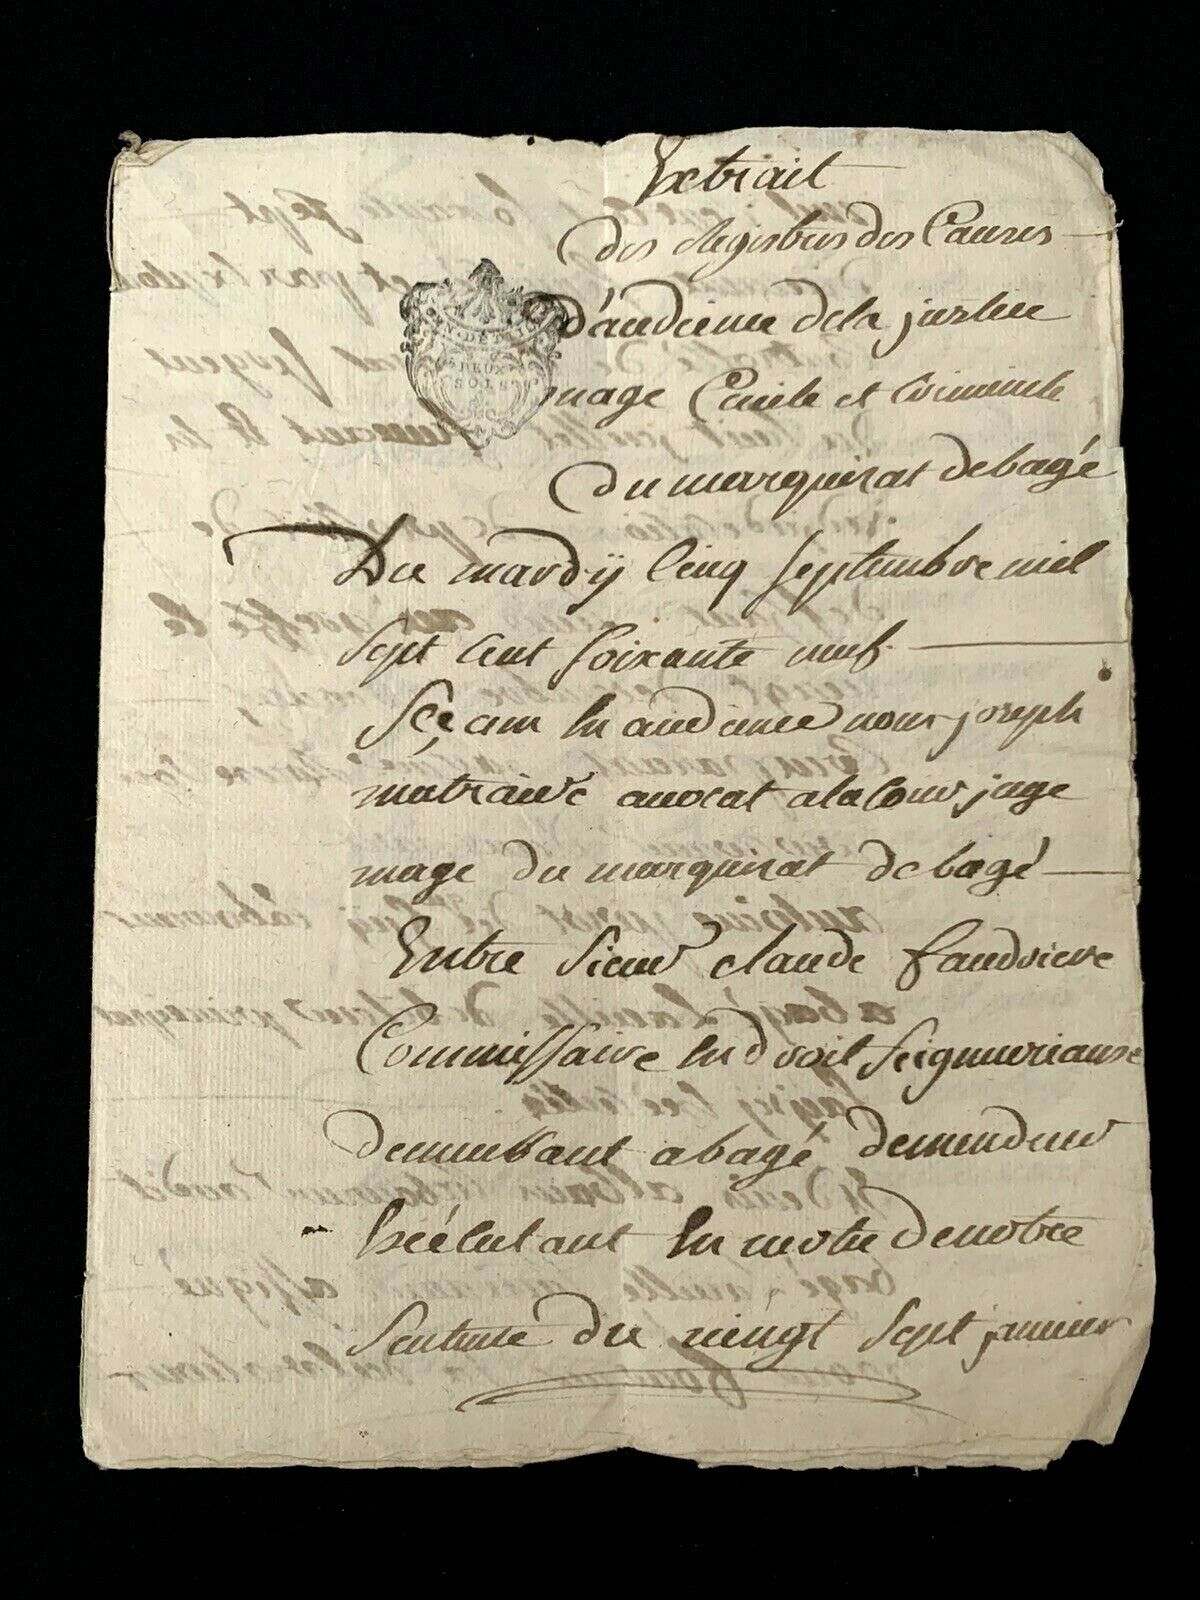 Extrait
des Registres des Causes
d'audience de la justice
GEN. DE DIJON
DEUX
SOLS
mage Civile et Criminele
du marquisat de bagé
Du mardy Cinq septembre mil
sept Cent soixante neuf
Sceant En audience nous joseph
avocat a la Cour juge
mage du marquisat de bagé
Entre sieur Claude faudriere
Commissaire En droit seigneuriaux
demeurant a bagé demendeur
Exécutant En notre
sentence du vingt sept janvier